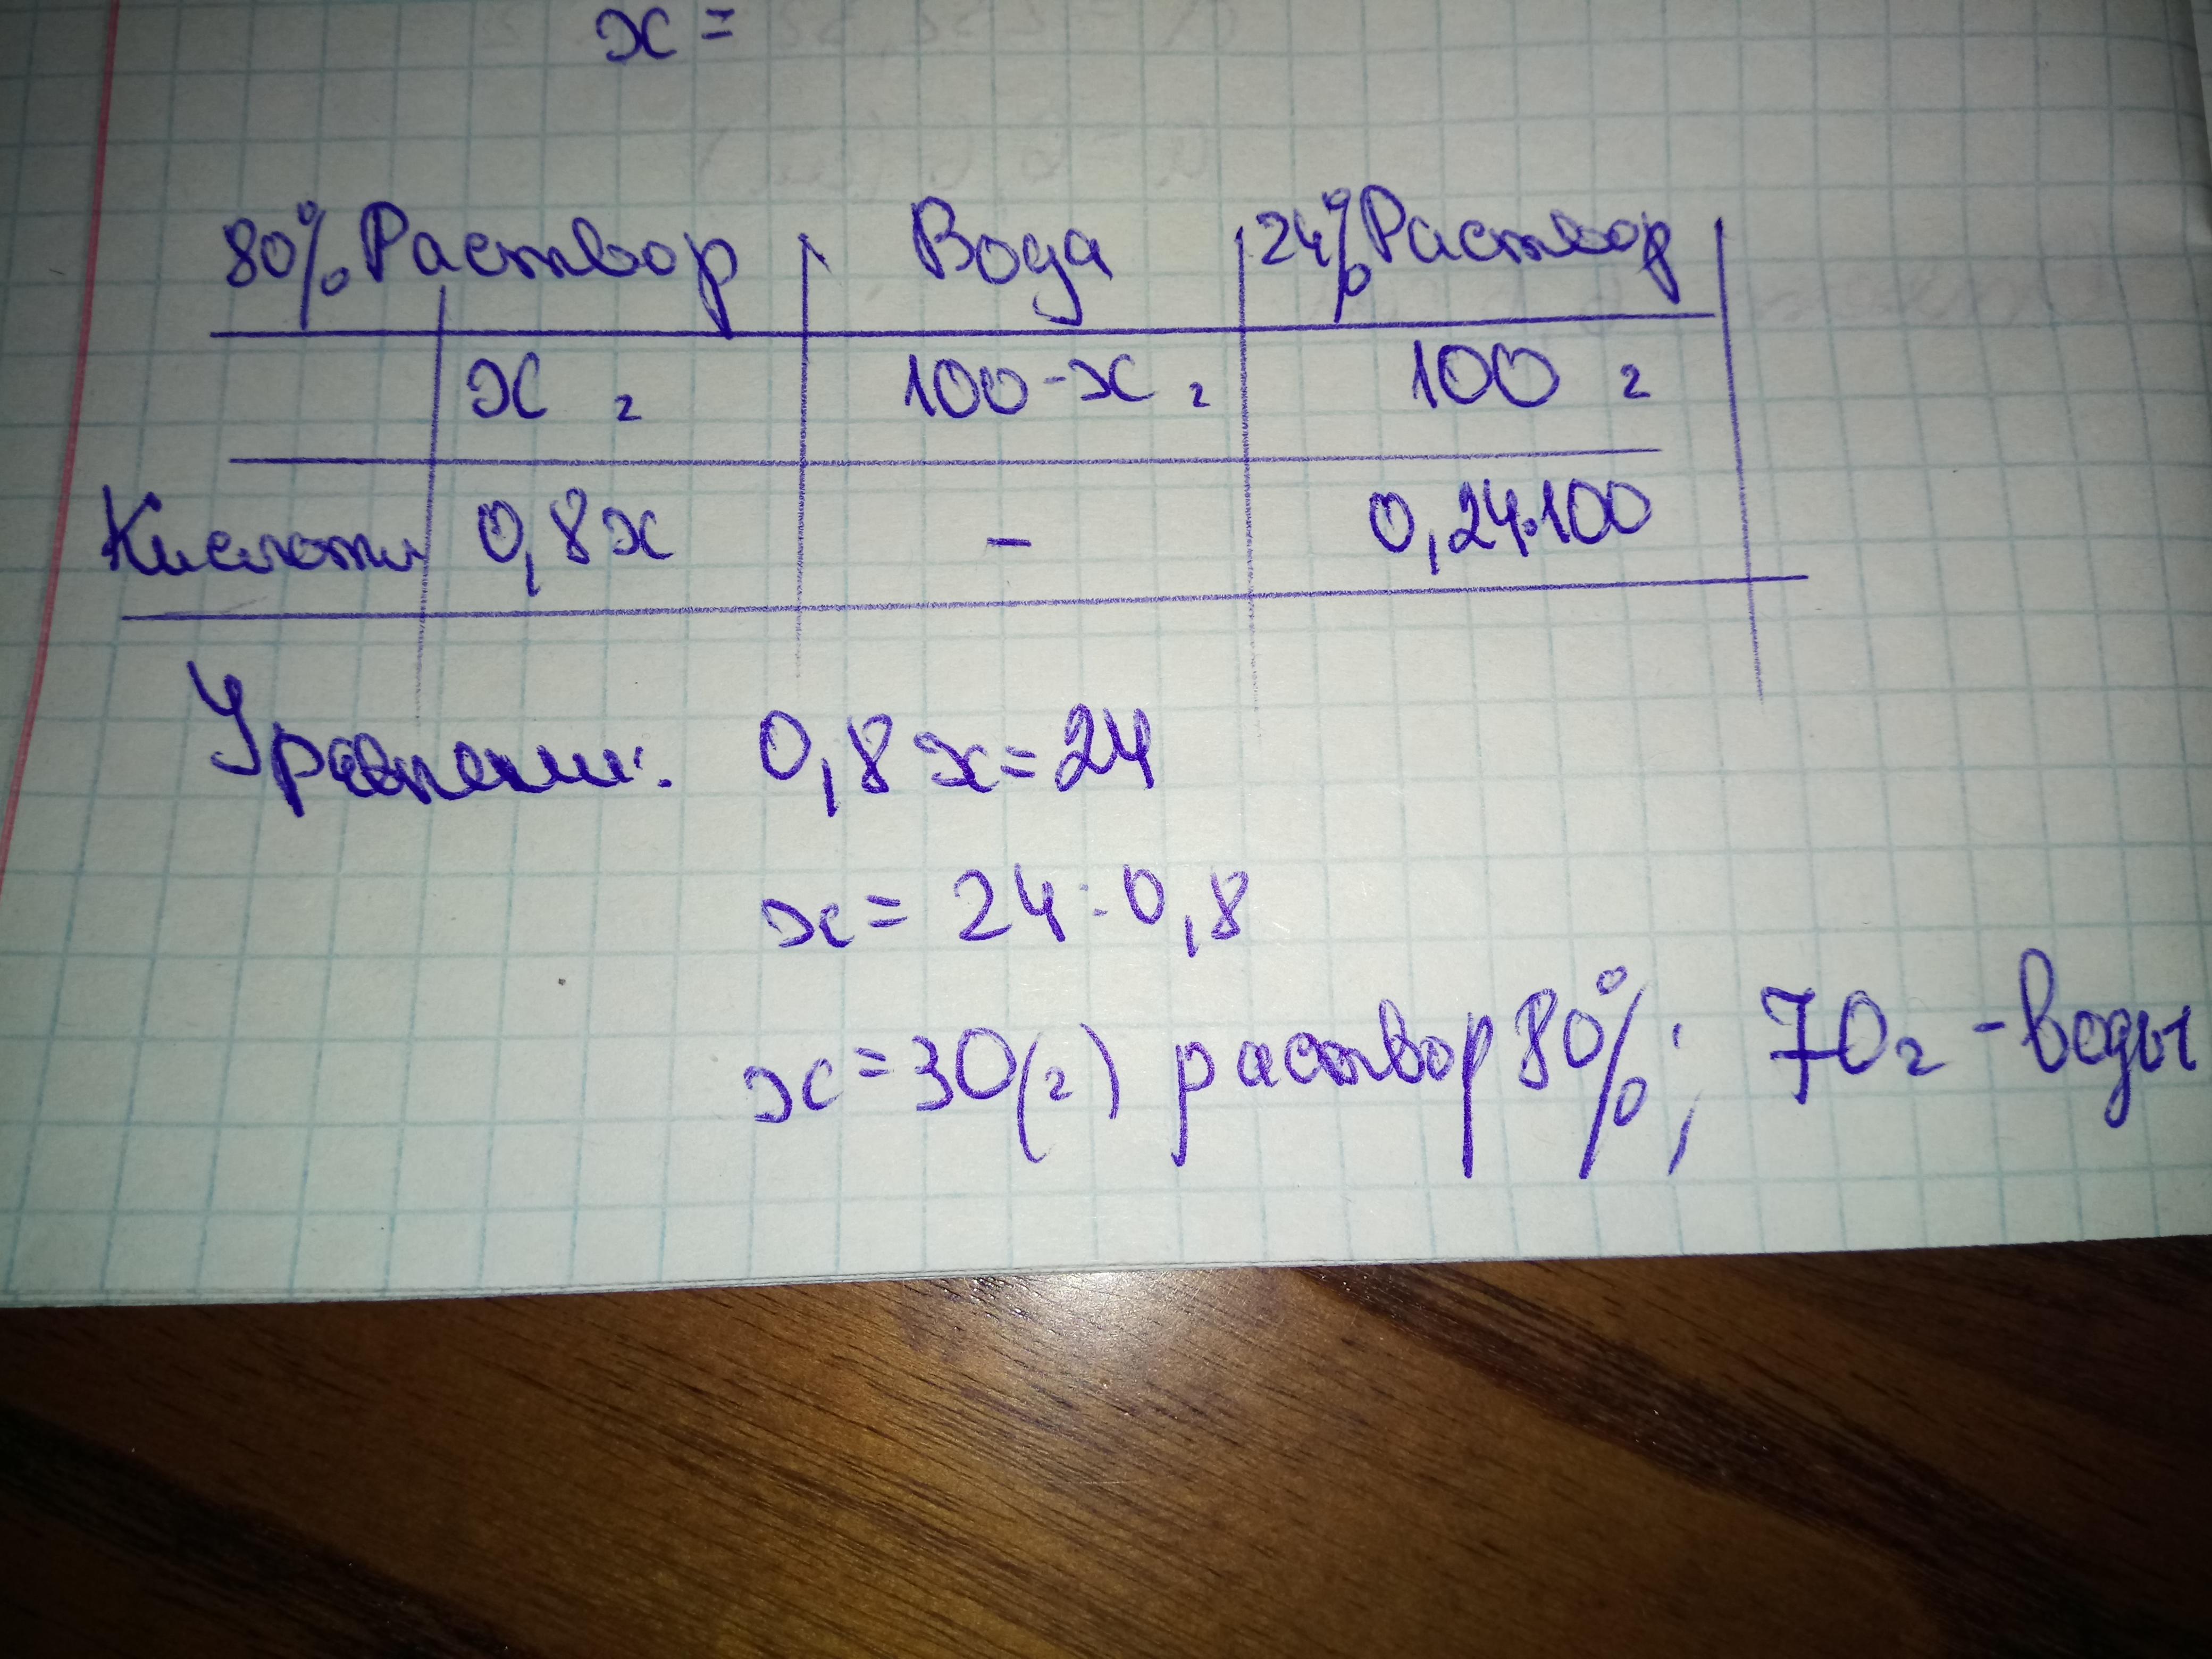 x =
80% Раствор Вода 24% Раствор
x г 100-x г 100 г
Кислоты 0,8x - 0,24·100
Уравнение: 0,8x=24
x= 24:0,8
x=30(г) раствор 80%; 70г -воды